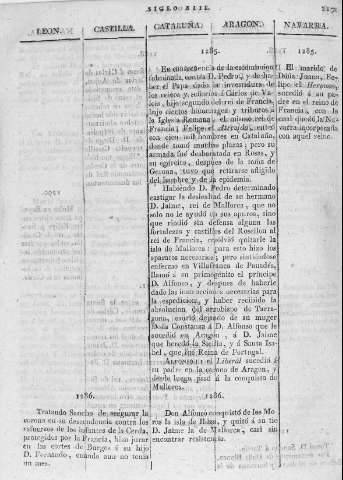 SIGLO XIII.
LEON. CASTILLA. CATALUÑA. ARAGON. NAVARRA.
1285.
En consecuencia de la
fulminada contra D. Pedro, y
ber el Papa dado la investidura de
los reinos y señoríos á Cárlos de Va-
lois, hijo segundo del rei de Francia,
bajo ciertos homenages y tributos á
la Iglesia Romana, el mismo rei de
Francia, Felipe el Atrevido, entró
con cien mil hombres en Cataluña,
donde tomó muchas plazas; pero su
armada fué desbaratada en Rosas, y
su egército, despues de la toma de
Gerona, tuvo que retirarse afligido
del hambre y de la epidemia.
Habiendo D. Pedro determinado
castigar la deslealtad de su hermano
D. Jaime, rei de Mallorca, que no
solo no le ayudó en sus apuros, sino
que rindió sin defensa alguna las
fortalezas y castillos del Rosellon al
rei de Francia, resolvió quitarle la
isla de Mallorca: para esto hizo los
aparatos necesarios; pero sintiéndose
enfermo en Villafranca de Panadés,
llamó á su primogénito el príncipe
D. Alfonso, y despues de haberle
dado las instrucciones necesarias para
la espedicion, y haber recibido la
absolucion del arzobispo de Tarra-
gona, murió dejando de su muger
Doña Constanza á D. Alfonso que le
sucedió en Aragon, á D. Jaime
que heredó la Sicilia, y á Santa Isa-
bel, que fué Reina de Portugal.
ALFONSO III el Liberal sucedió á
su padre en la corona de Aragon, y
desde luego pasó á la conquista de
Mallorca.
1285.
El marido de
Doña Juana, Fe-
lipe el Hermoso,
sucedió á su pa-
dre en el reino de
Francia, con la
cual quedó la Na-
varra incorporada
con aquel reino.
1286.
Tratando Sancho de asegurar la
corona en su descendencia contra los
esfuerzos de los infantes de la Cerda,
protegidos por la Francia, hizo jurar
en las cortes de Burgos á su hijo
D. Fernando, cuando aun no tenia
un mes.
1286.
Don Alfonso conquistó de los Mo-
ros la isla de Ibiza, y quitó á su tio
D. Jaime la de Mallorca, casi sin
encontrar resistencia.